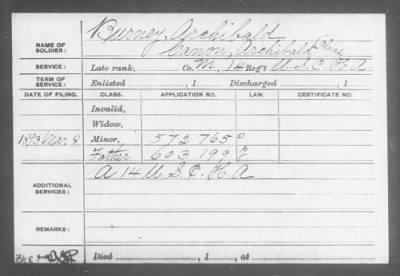 Burney, Archibald
NAME OF SOLDIER: Canon, Archibald Alias
SERVICE: Late rank, Co. M, 14 Reg't U.S.C.H.A.
TERM OF SERVICE: Enlisted , 1 Discharged , 1
DATE OF FILING. CLASS. APPLICATION NO. LAW. CERTIFICATE NO.
Invalid,
Widow,
1893 Mar 8 Minor, 572765
Father 603199
ADDITIONAL SERVICES: A 14 U.S.C.H.A
REMARKS:
Died , 1 , at